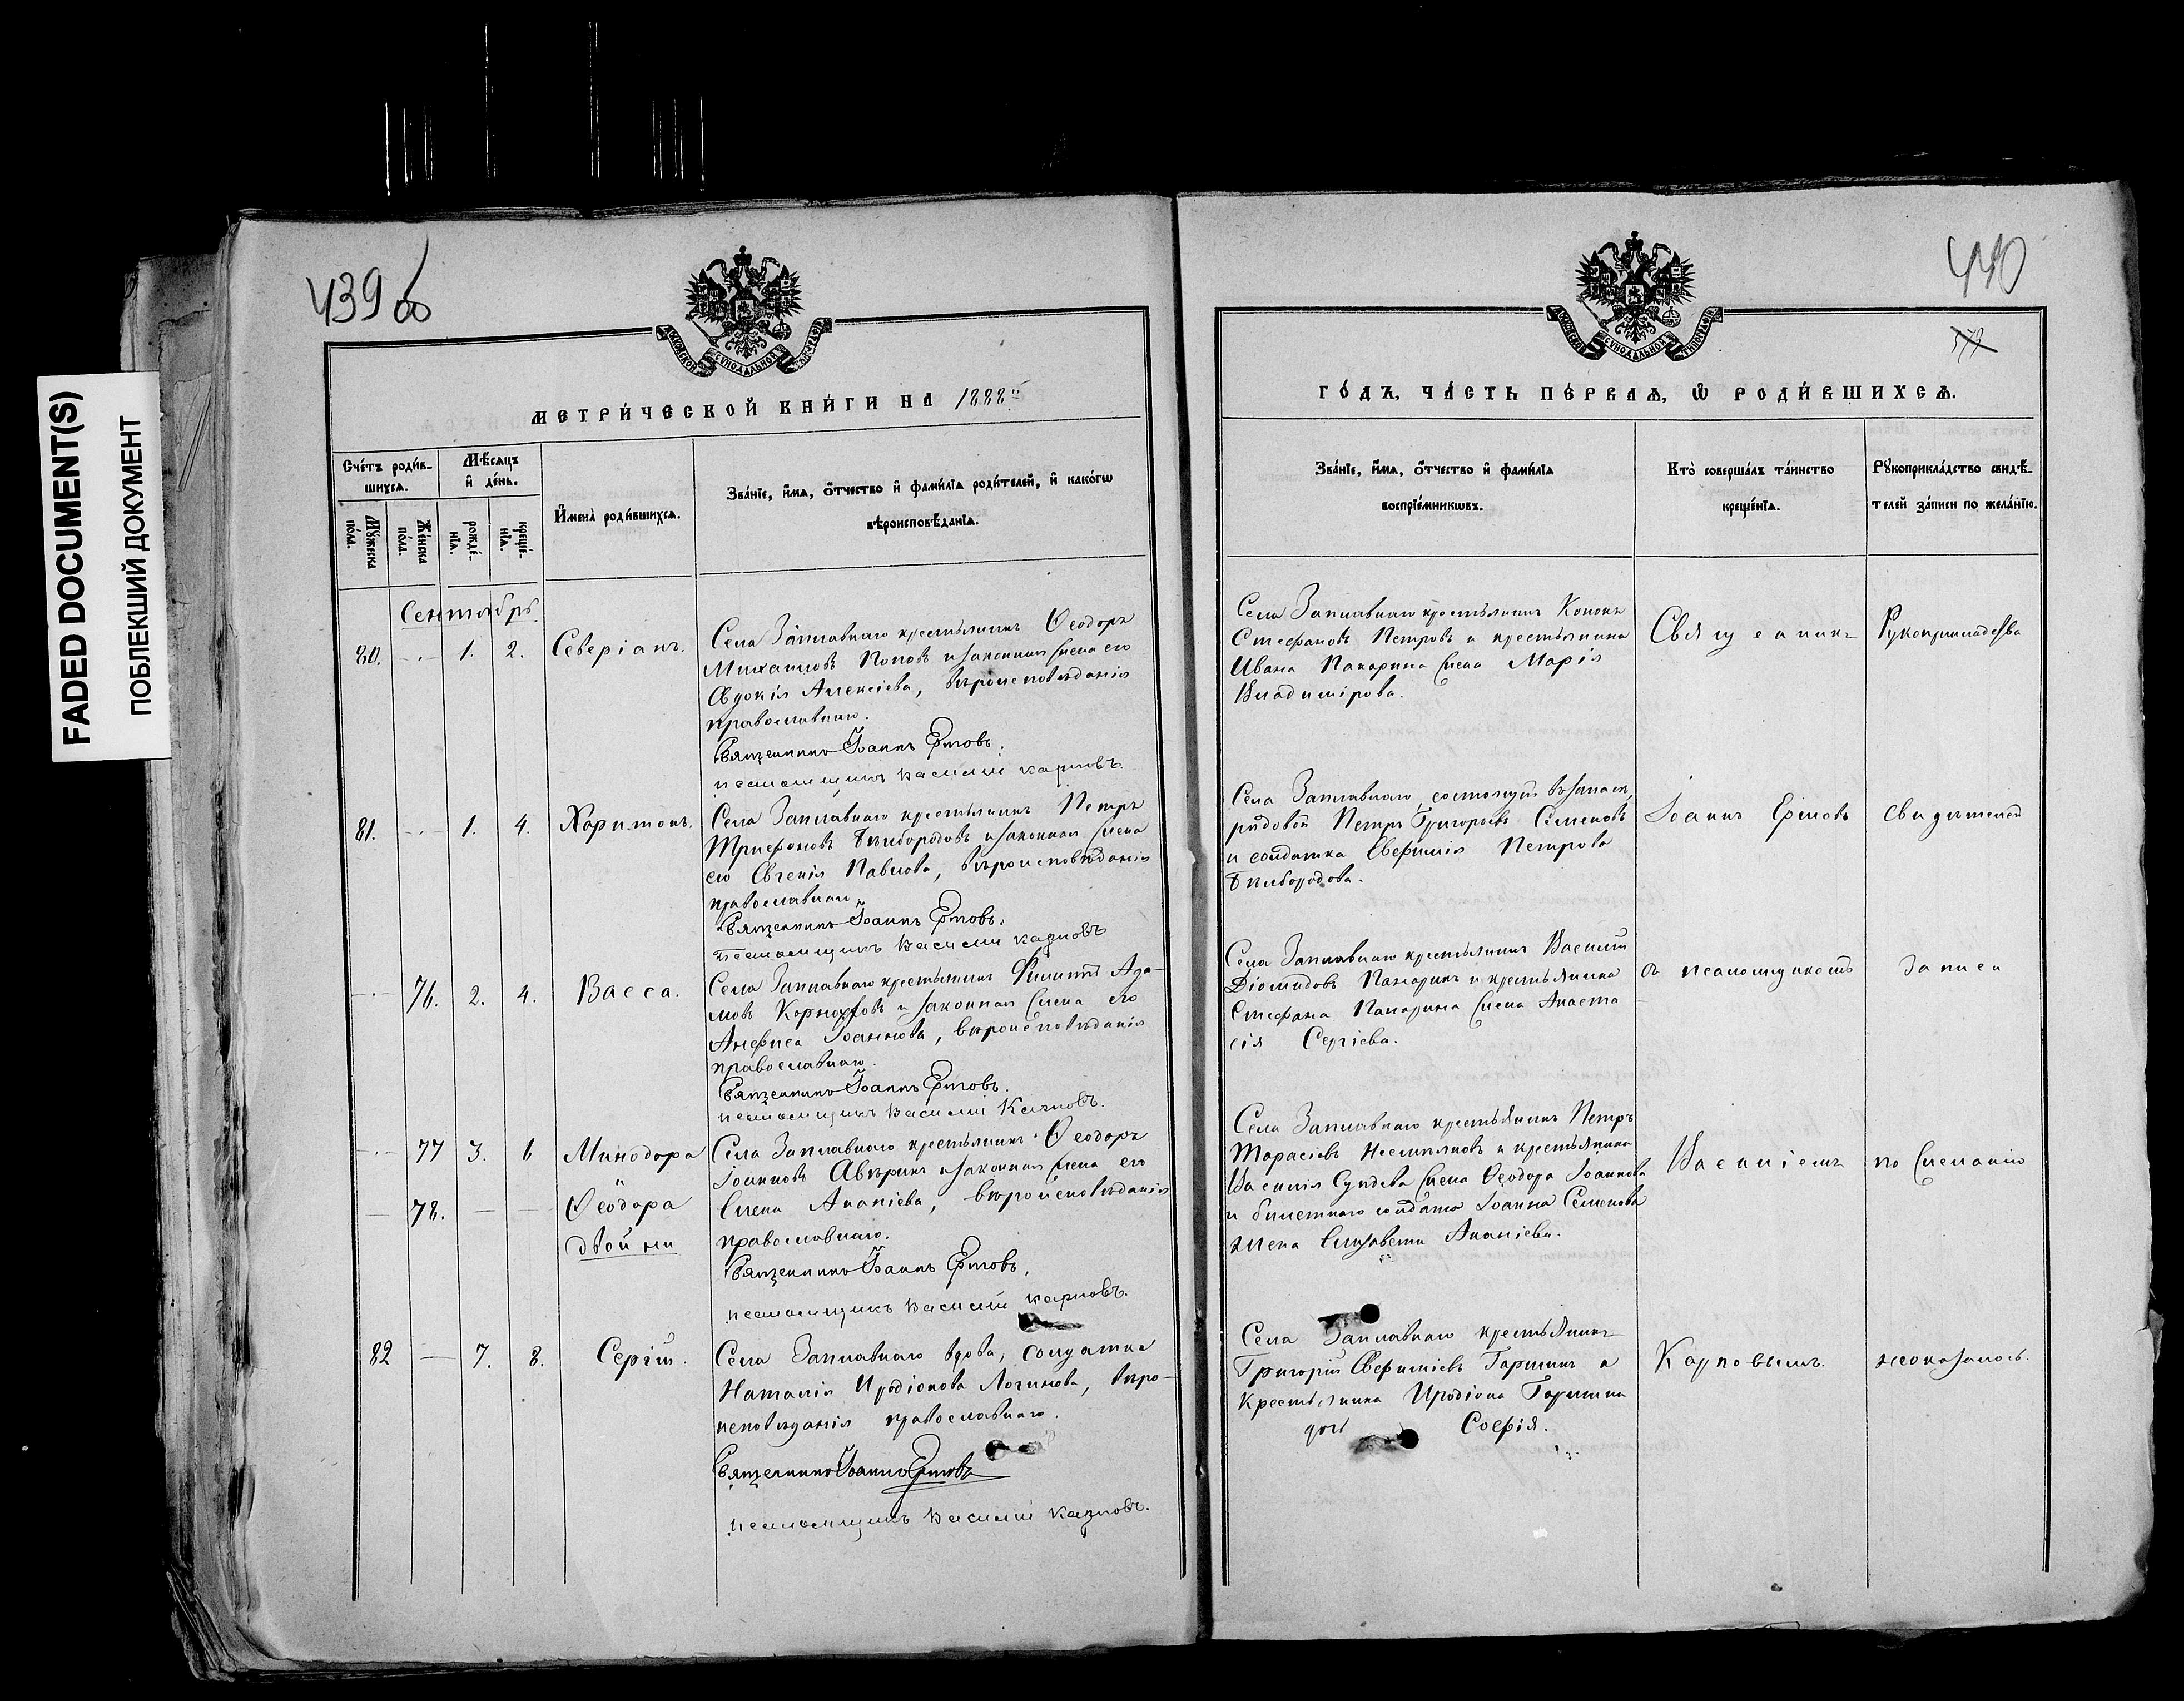 FADED DOCUMENT(S)
ПОБЛЕКШИЙ ДОКУМЕНТ
439 об
МОСКОВСКОЙ СѴНОДАЛЬНОЙ ТИПОГРАФІИ
МЕТРИ́ЧЕСКОЙ КНИ́ГИ НА 1888й
Сче́тъ роди́в-
шихсѧ.
Мꙋ́жеска
по́ла.
Же́нска
по́ла.
Мѣ́сѧцъ
и҆ де́нь.
рожде́-
нїѧ.
креще́-
нїѧ.
И҆мена̀ роди́вшихсѧ.
Зва́нїе, и҆́мѧ, ѻ҆́тчество и҆ фами́лїѧ роди́телей, и҆ како́гѡ
вѣроисповѣ́данїѧ.
Сентябрь.
80. -.- 1. 2. Северіанъ.
Села Заплавнаго крестьянинъ Ѳеодоръ
Михаиловъ Поповъ и законная жена его
Евдокія Алексіева, вѣроисповѣданія
православнаго.
Священникъ Іоаннъ Ермовъ.
псаломщикъ Василій Карповъ.
81. -.- 1. 4. Харитонъ.
Села Заплавнаго крестьянинъ Петръ
Трифоновъ Бѣлобородовъ и законная жена
его Евгенія Павлова, вѣроисповѣданія
православнаго
Священникъ Іоаннъ Ермовъ.
псаломщикъ Василій Карповъ
-.- 76. 2. 4. Васса.
Села Заплавнаго крестьянинъ Филиппъ Ада-
мовъ и законная жена его
Анфиса Іоаннова, вѣроисповѣданія
православнаго.
Священникъ Іоаннъ Ермовъ.
псаломщикъ Василій Карповъ.
-.- 77 3. 6 Минодора
Села Заплавнаго крестьянинъ Ѳеодоръ
Іоанновъ Авѣринъ и законная жена его
— 78. — — Ѳеодора
Елена Ананіева, вѣроисповѣданія
двойни
православнаго.
Священникъ Іоаннъ Ермовъ,
псаломщикъ Василій Карповъ.
82 — 7. 8. Сергій.
Села Заплавнаго вдова, солдатка
Наталія Иродіонова Логинова, вѣро-
исповѣданія православнаго.
Священникъ Іоаннъ Ермовъ
псаломщикъ Василій Карповъ.
440
МОСКОВСКОЙ СѴНОДАЛЬНОЙ ТИПОГРАФІИ
ГО́ДЪ, ЧА́СТЬ ПЕ́РВАѦ, Ѡ҆ РОДИ́ВШИХСѦ.
Зва́нїе, и҆́мѧ, ѻ҆́тчество и҆ фами́лїѧ
воспрїе́мникѡвъ.
Кто̀ соверша́лъ та́инство
креще́нїѧ.
Рꙋкоприкла́дство свидѣ́-
телей за́писи по жела́нїю.
Села Заплавнаго крестьянинъ Кононъ
Стефановъ Петровъ и крестьянина
Ивана Панарина жена Марія
Владимірова.
Священникъ
Рукоприкладства
Села Заплавнаго, состоящій въ запасѣ,
рядовой Петръ Григорьевъ Семеновъ
и солдатка Евфимія Петрова
Бѣлобородова.
Іоаннъ Ермовъ
свидѣтелей
Села Заплавнаго крестьянинъ Василій
Діомидовъ Панаринъ и крестьянина
Стефана Панарина жена Анаста
сія Сергіева.
съ псаломщикомъ
записи
Села Заплавнаго крестьянинъ Петръ
Тарасіевъ и крестьянина
Василія жена Ѳеодора Іоаннова
и билетнаго солдата Іоанна Семенова
жена Елизавета Ананіева.
Василіемъ
по желанію
Села Заплавнаго крестьянинъ
Григорій Евфиміевъ Горшинъ и
крестьянина Иродіона Горшина
доч София.
Карповымъ.
неоказалось.